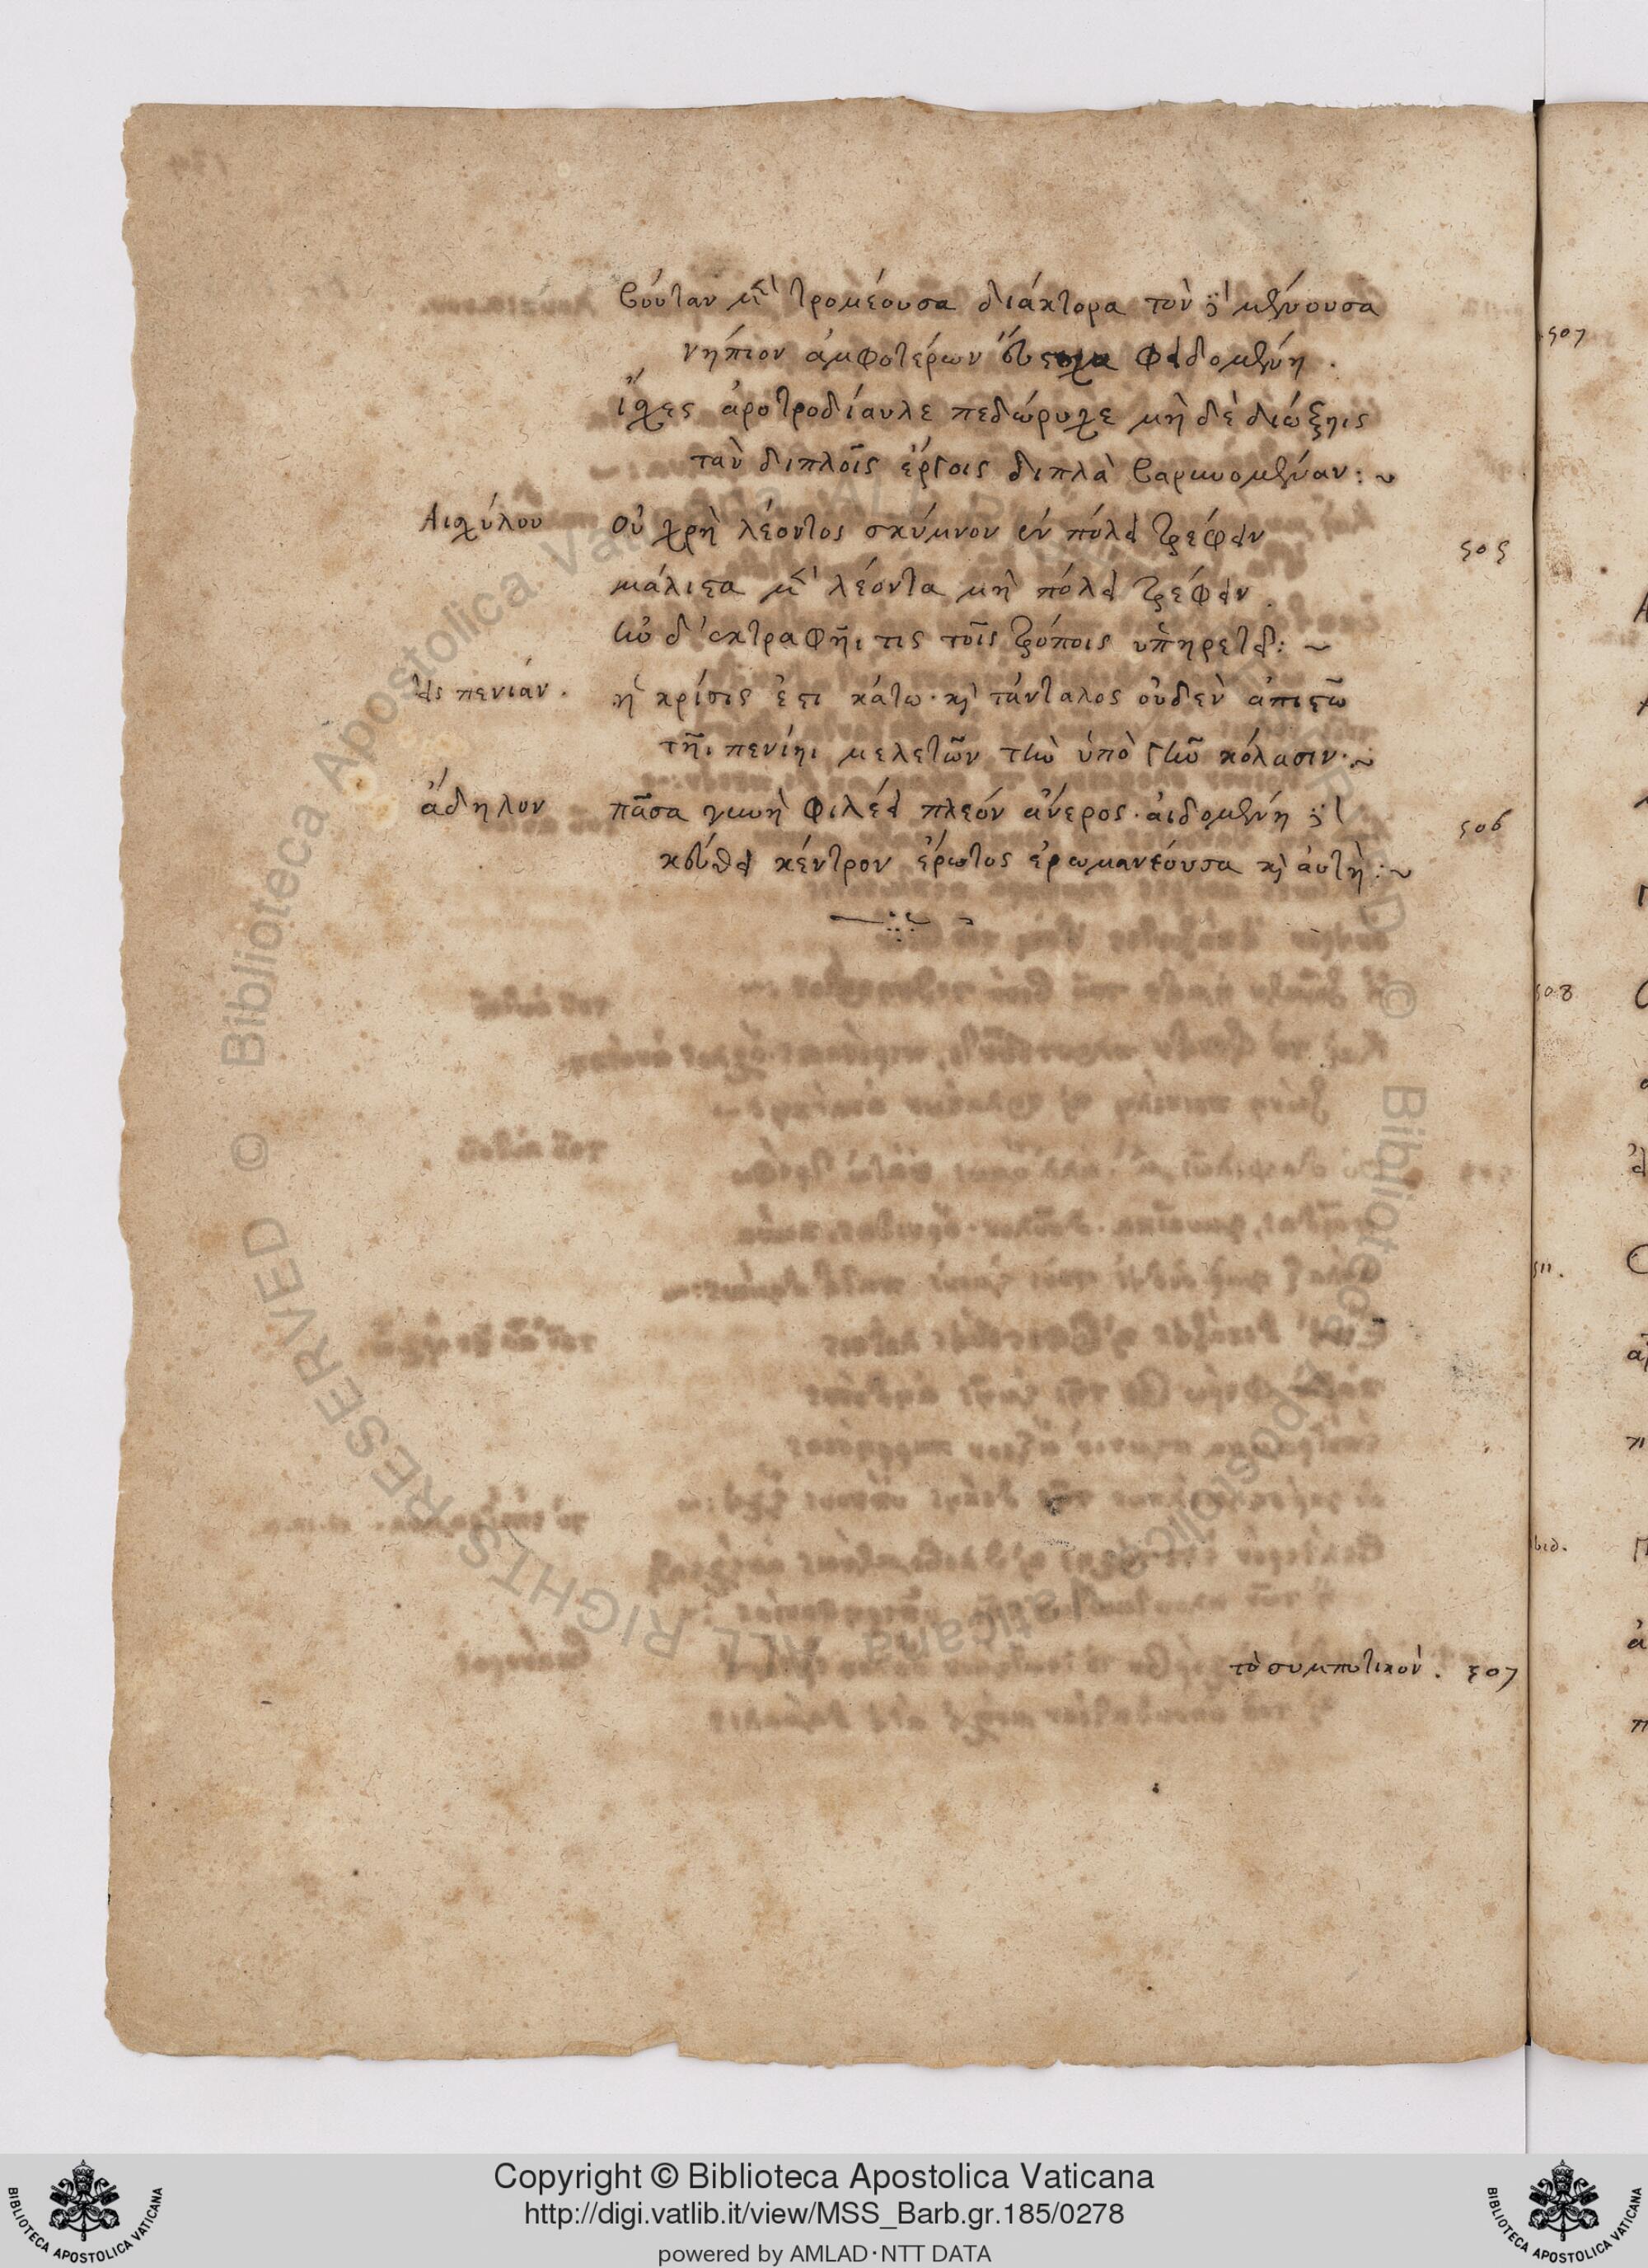 βούταν μὲν τρομέουσα διάκτορα τὸν δὲ μένουσα
νήπιον ἀμφοτέρων ἕνεκα φειδομένη.
ἴσχες ἀροτροδίαυλε πεδώρυχε μὴ δὲ διώξηις
τὰν διπλοῖς ἔργοις διπλὰ βαρυνομέναν:~
Αισχύλου
Οὐ χρὴ λέοντος σκύμνον ἐν πόλει τρέφειν
μάλιστα μὲν λέοντα μὴ πόλει τρέφειν.
ἢν δ' ἐκτραφῆι τις τοῖς τρόποις ὑπηρετεῖν:~
εἰς πενίαν.
ἡ κρίσις ἔστι κάτω· καὶ τάνταλος οὐδὲν ἀπιστῶ
τῆι πενίηι μελετῶν τὴν ὑπὸ γῆν κόλασιν·~
ἄδηλον
πᾶσα γυνὴ φιλέει πλεόν ἀνερος· αἰδομένη δὲ
κεύθει κέντρον ἔρωτος ἐρωμανέουσα καὶ ἀυτὴ:~
τὸ συμποτικὸν. 507
505
506
507
508
511.
ibid.
Copyright © Biblioteca Apostolica Vaticana
http://digi.vatlib.it/view/MSS_Barb.gr.185/0278
powered by AMLAD·NTT DATA
BIBLIOTECA APOSTOLICA VATICANA
BIBLIOTECA APOSTOLICA VATICANA
© Biblioteca Apostolica Vaticana ALL RIGHTS RESERVED